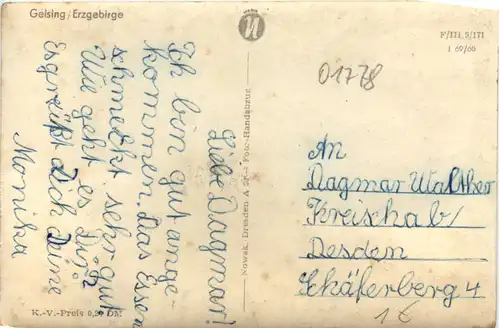 Geising/Erzgebirge
Liebe Dagmar!
Ich bin gut ange-
kommen. Das Essen
schmeckt sehr gut
Wie geht es Dir?
Es grüßt Dich Deine
Monika
K.-V.-Preis 0,20 DM
Nowak, Dresden A 20 • Foto-Handabzug
F/III/9/171
1 69/60
01778
An
Dagmar Walther
Kreischab/
Desden
Schäferberg 4
1€